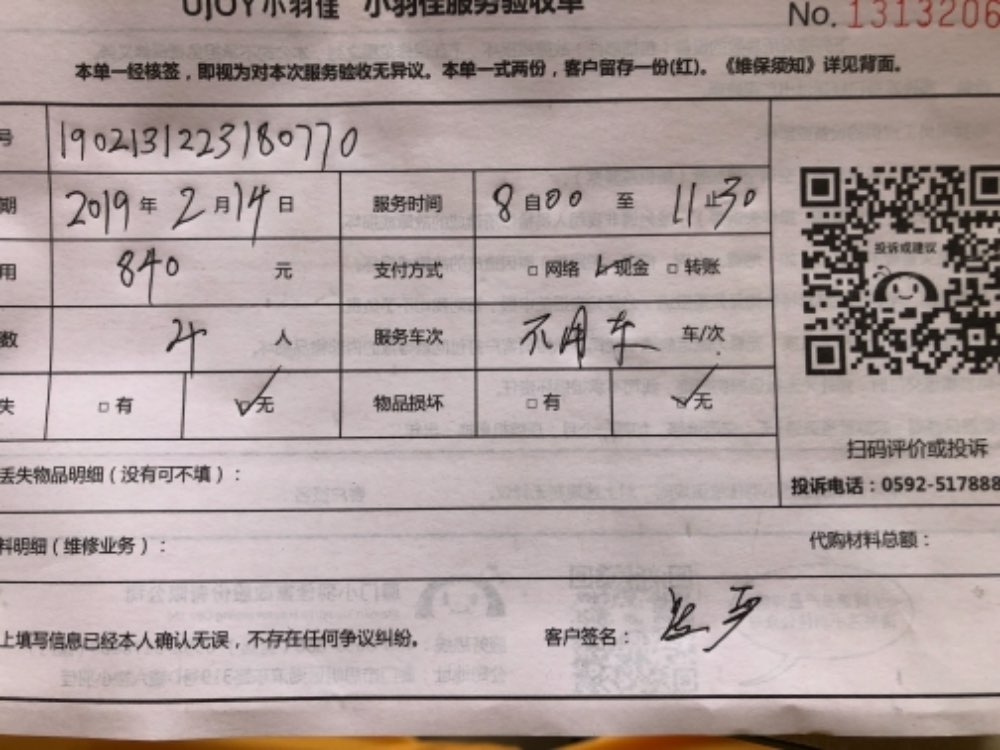 UJOY小羽佳 小羽佳服务验收单
No. 1313206
本单一经核签，即视为对本次服务验收无异议。本单一式两份，客户留存一份(红)。《维保须知》详见背面。
号 1902131223180770
期 2019 年 2 月 14 日 服务时间 8 自 00 至 11 止 30
用 840 元 支付方式 □ 网络 ✓ 现金 □ 转账
数 人 服务车次 不用车 车/次
失 □ 有 ☑ 无 物品损坏 □ 有 ☑ 无
投诉或建议
扫码评价或投诉
丢失物品明细（没有可不填）：
投诉电话：0592-517888
料明细（维修业务）： 代购材料总额：
上填写信息已经本人确认无误，不存在任何争议纠纷。 客户签名：